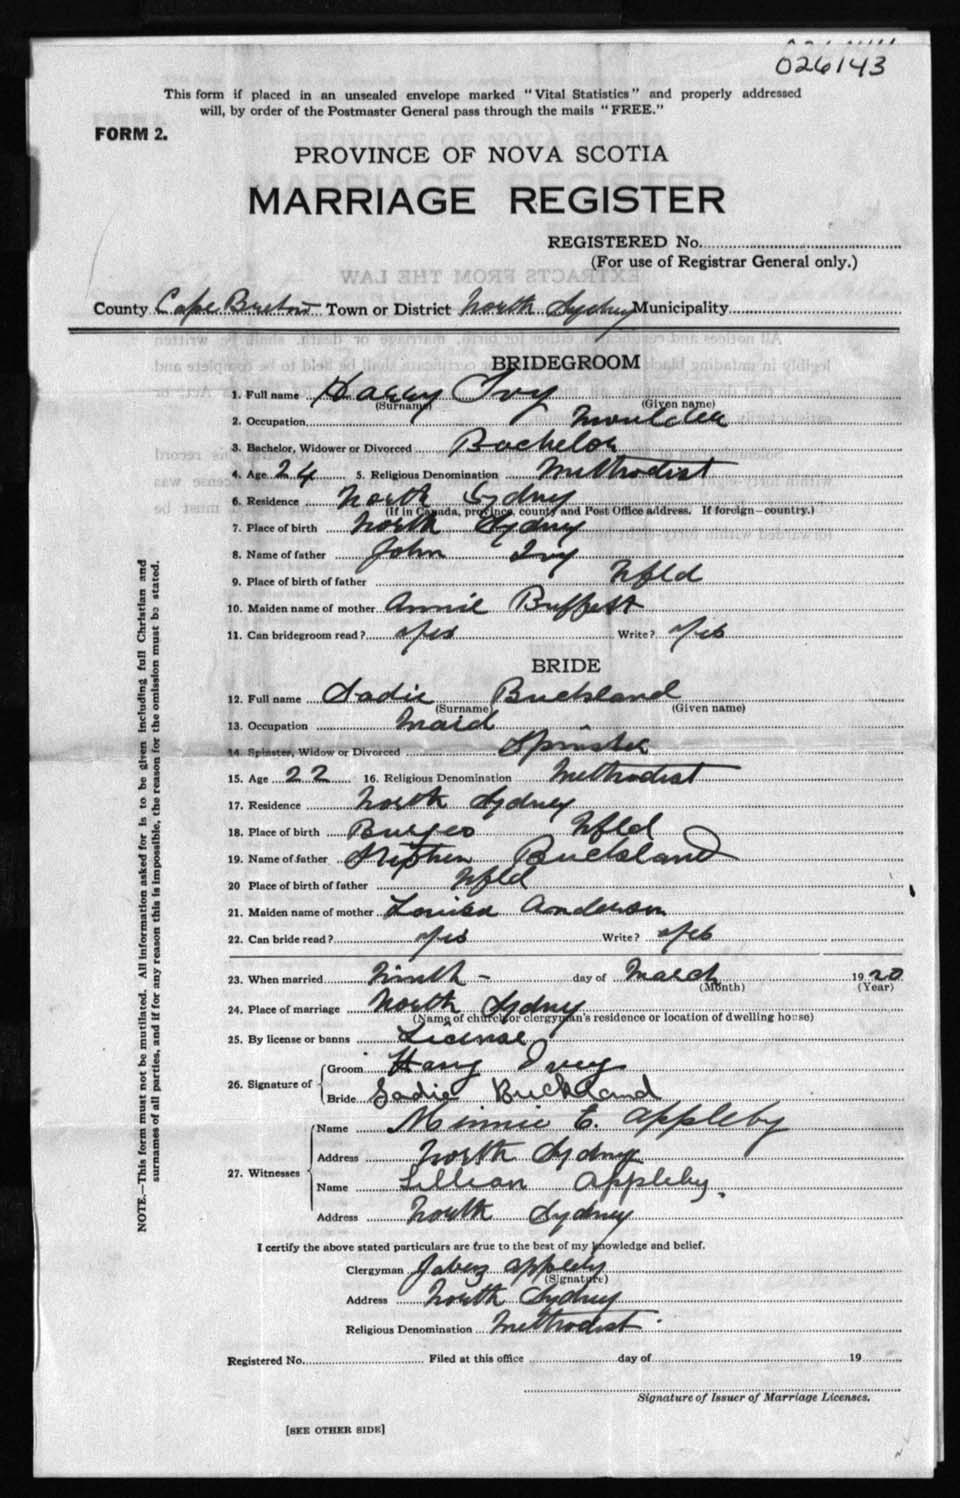 026143
This form if placed in an unsealed envelope marked "Vital Statistics" and properly addressed
will, by order of the Postmaster General pass through the mails "FREE."
FORM 2.
PROVINCE OF NOVA SCOTIA
MARRIAGE REGISTER
REGISTERED No.
(For use of Registrar General only.)
County Cape Breton Town or District North Sydney Municipality
BRIDEGROOM
1. Full name Harry Ivy
(Surname) (Given name)
2. Occupation Moulder
3. Bachelor, Widower or Divorced Bachelor
4. Age 24 5. Religious Denomination Methodist
6. Residence North Sydney
(If in Canada, province, county and Post Office address. If foreign—country.)
7. Place of birth North Sydney
8. Name of father John Ivy
9. Place of birth of father Nfld
10. Maiden name of mother Annie Buffett
11. Can bridegroom read? Yes Write? Yes
BRIDE
12. Full name Sadie Buckland
(Surname) (Given name)
13. Occupation Maid
14. Spinster, Widow or Divorced Spinster
15. Age 22 16. Religious Denomination Methodist
17. Residence North Sydney
18. Place of birth Burgeo Nfld
19. Name of father Stephen Buckland
20 Place of birth of father Nfld
21. Maiden name of mother Louisa Anderson
22. Can bride read? Yes Write? Yes
23. When married Ninth - day of March 1920
(Month) (Year)
24. Place of marriage North Sydney
(Name of church or clergyman's residence or location of dwelling house)
25. By license or banns License
26. Signature of Groom Harry Ivey
Bride Sadie Buckland
27. Witnesses Name Minnie E. Appleby
Address North Sydney
Name Lillian Appleby.
Address North Sydney
I certify the above stated particulars are true to the best of my knowledge and belief.
Clergyman Jabez Appleby
(Signature)
Address North Sydney
Religious Denomination Methodist.
Registered No. Filed at this office day of 19
Signature of Issuer of Marriage Licenses.
[SEE OTHER SIDE]
NOTE.—This form must not be mutilated. All information asked for is to be given including full Christian and
surnames of all parties, and if for any reason this is impossible, the reason for the omission must be stated.